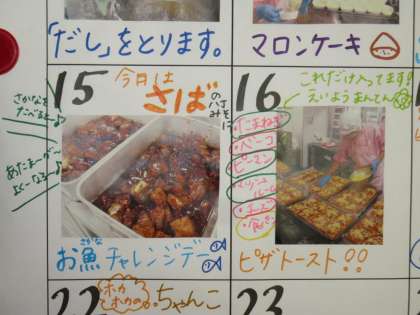 「だし」をとります。
マロンケーキ
15 今日は
さば
のみそに
さかなを
たべると〜♪
あたまーが〜
よくーなるー♪
お魚チャレンジデー
さかな
16 これだけ入ってます
えいようまんてん
・たまねぎ
・ベーコン
・ピーマン
・マッシュルーム
・チーズ
・食パン
ピザトースト!!
22 ホカホカの ちゃんこ
23